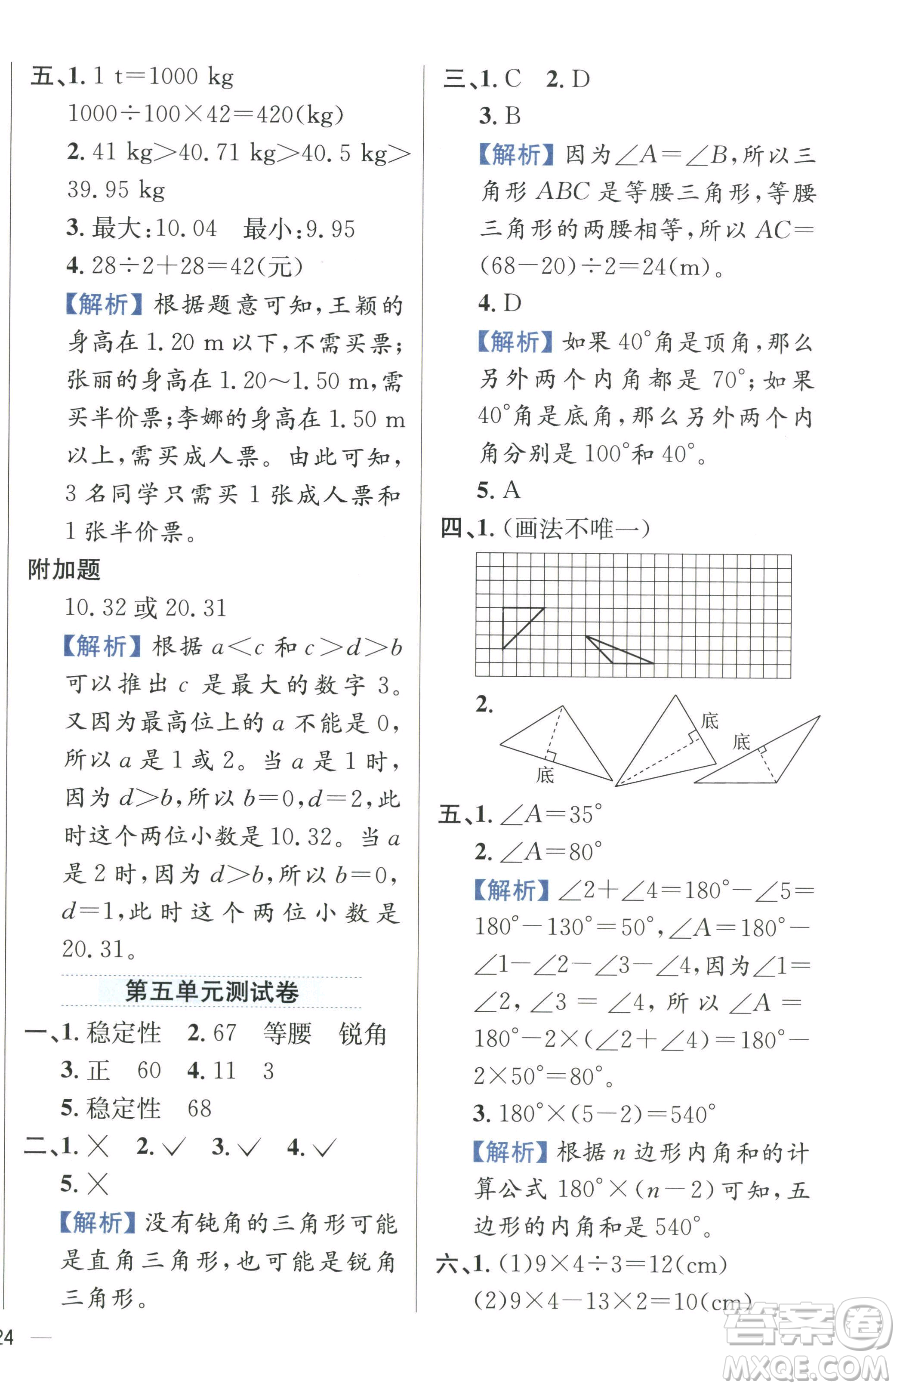 五、1. 1 t=1000 kg
1000÷100×42=420(kg)
2. 41 kg>40.71 kg>40.5 kg>
39.95 kg
3. 最大:10.04 最小:9.95
4. 28÷2+28=42(元)
【解析】根据题意可知,王颖的
身高在 1.20 m 以下,不需买票;
张丽的身高在 1.20~1.50 m,需
买半价票;李娜的身高在 1.50 m
以上,需买成人票。由此可知,
3 名同学只需买 1 张成人票和
1 张半价票。
附加题
10.32 或 20.31
【解析】根据 a<c 和 c>d>b
可以推出 c 是最大的数字 3。
又因为最高位上的 a 不能是 0,
所以 a 是 1 或 2。当 a 是 1 时,
因为 d>b,所以 b=0,d=2,此
时这个两位小数是 10.32。当 a
是 2 时,因为 d>b,所以 b=0,
d=1,此时这个两位小数是
20.31。
第五单元测试卷
一、1. 稳定性 2. 67 等腰 锐角
3. 正 60 4. 11 3
5. 稳定性 68
二、1. × 2. ✓ 3. ✓ 4. ✓
5. ×
【解析】没有钝角的三角形可能
是直角三角形,也可能是锐角
三角形。
24
三、1. C 2. D
3. B
【解析】因为∠A=∠B,所以三
角形 ABC 是等腰三角形,等腰
三角形的两腰相等,所以 AC=
(68-20)÷2=24(m)。
4. D
【解析】如果 40°角是顶角,那么
另外两个内角都是 70°;如果
40°角是底角,那么另外两个内
角分别是 100°和 40°。
5. A
四、1. (画法不唯一)
2.
底 底 底
五、1. ∠A=35°
2. ∠A=80°
【解析】∠2+∠4=180°-∠5=
180°-130°=50°,∠A=180°-
∠1-∠2-∠3-∠4,因为∠1=
∠2,∠3=∠4,所以∠A=
180°-2×(∠2+∠4)=180°-
2×50°=80°。
3. 180°×(5-2)=540°
【解析】根据 n 边形内角和的计
算公式 180°×(n-2)可知,五
边形的内角和是 540°。
六、1. (1)9×4÷3=12(cm)
(2)9×4-13×2=10(cm)
答案圈
MXQE.COM